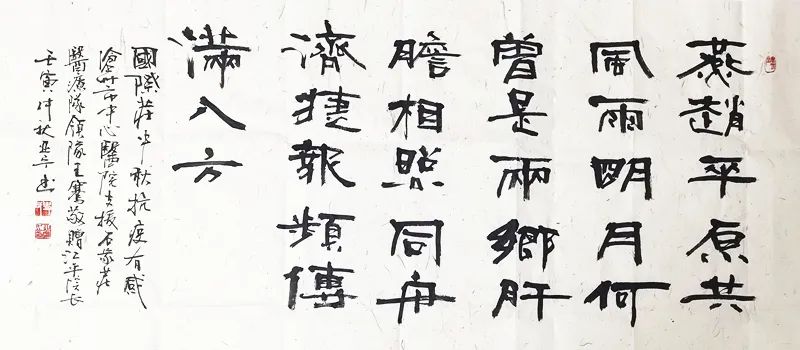 燕趙平原共
風雨明月何
曾是兩鄉肝
膽相照同舟
濟捷報頻傳
滿八方
國際莊 抗疫有感
滄州市中心醫院支援石家莊
醫療隊領隊王騫敬贈江平院長
壬寅仲秋